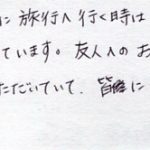 に旅行へ行く時は
ています。友人へのお
ただいていて、皆様に